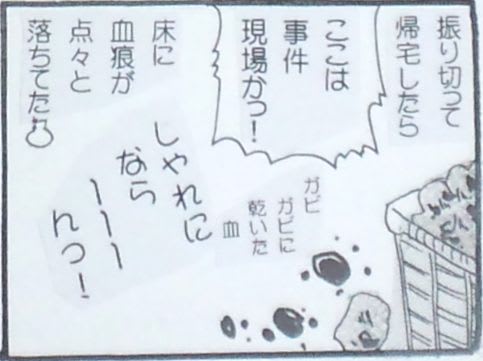 振り切って
帰宅したら
ここは
事件
現場かっ！
床に
血痕が
点々と
落ちてた
ガビ
ガビに
乾いた
血
しゃれに
なら
ーーー
んっ！